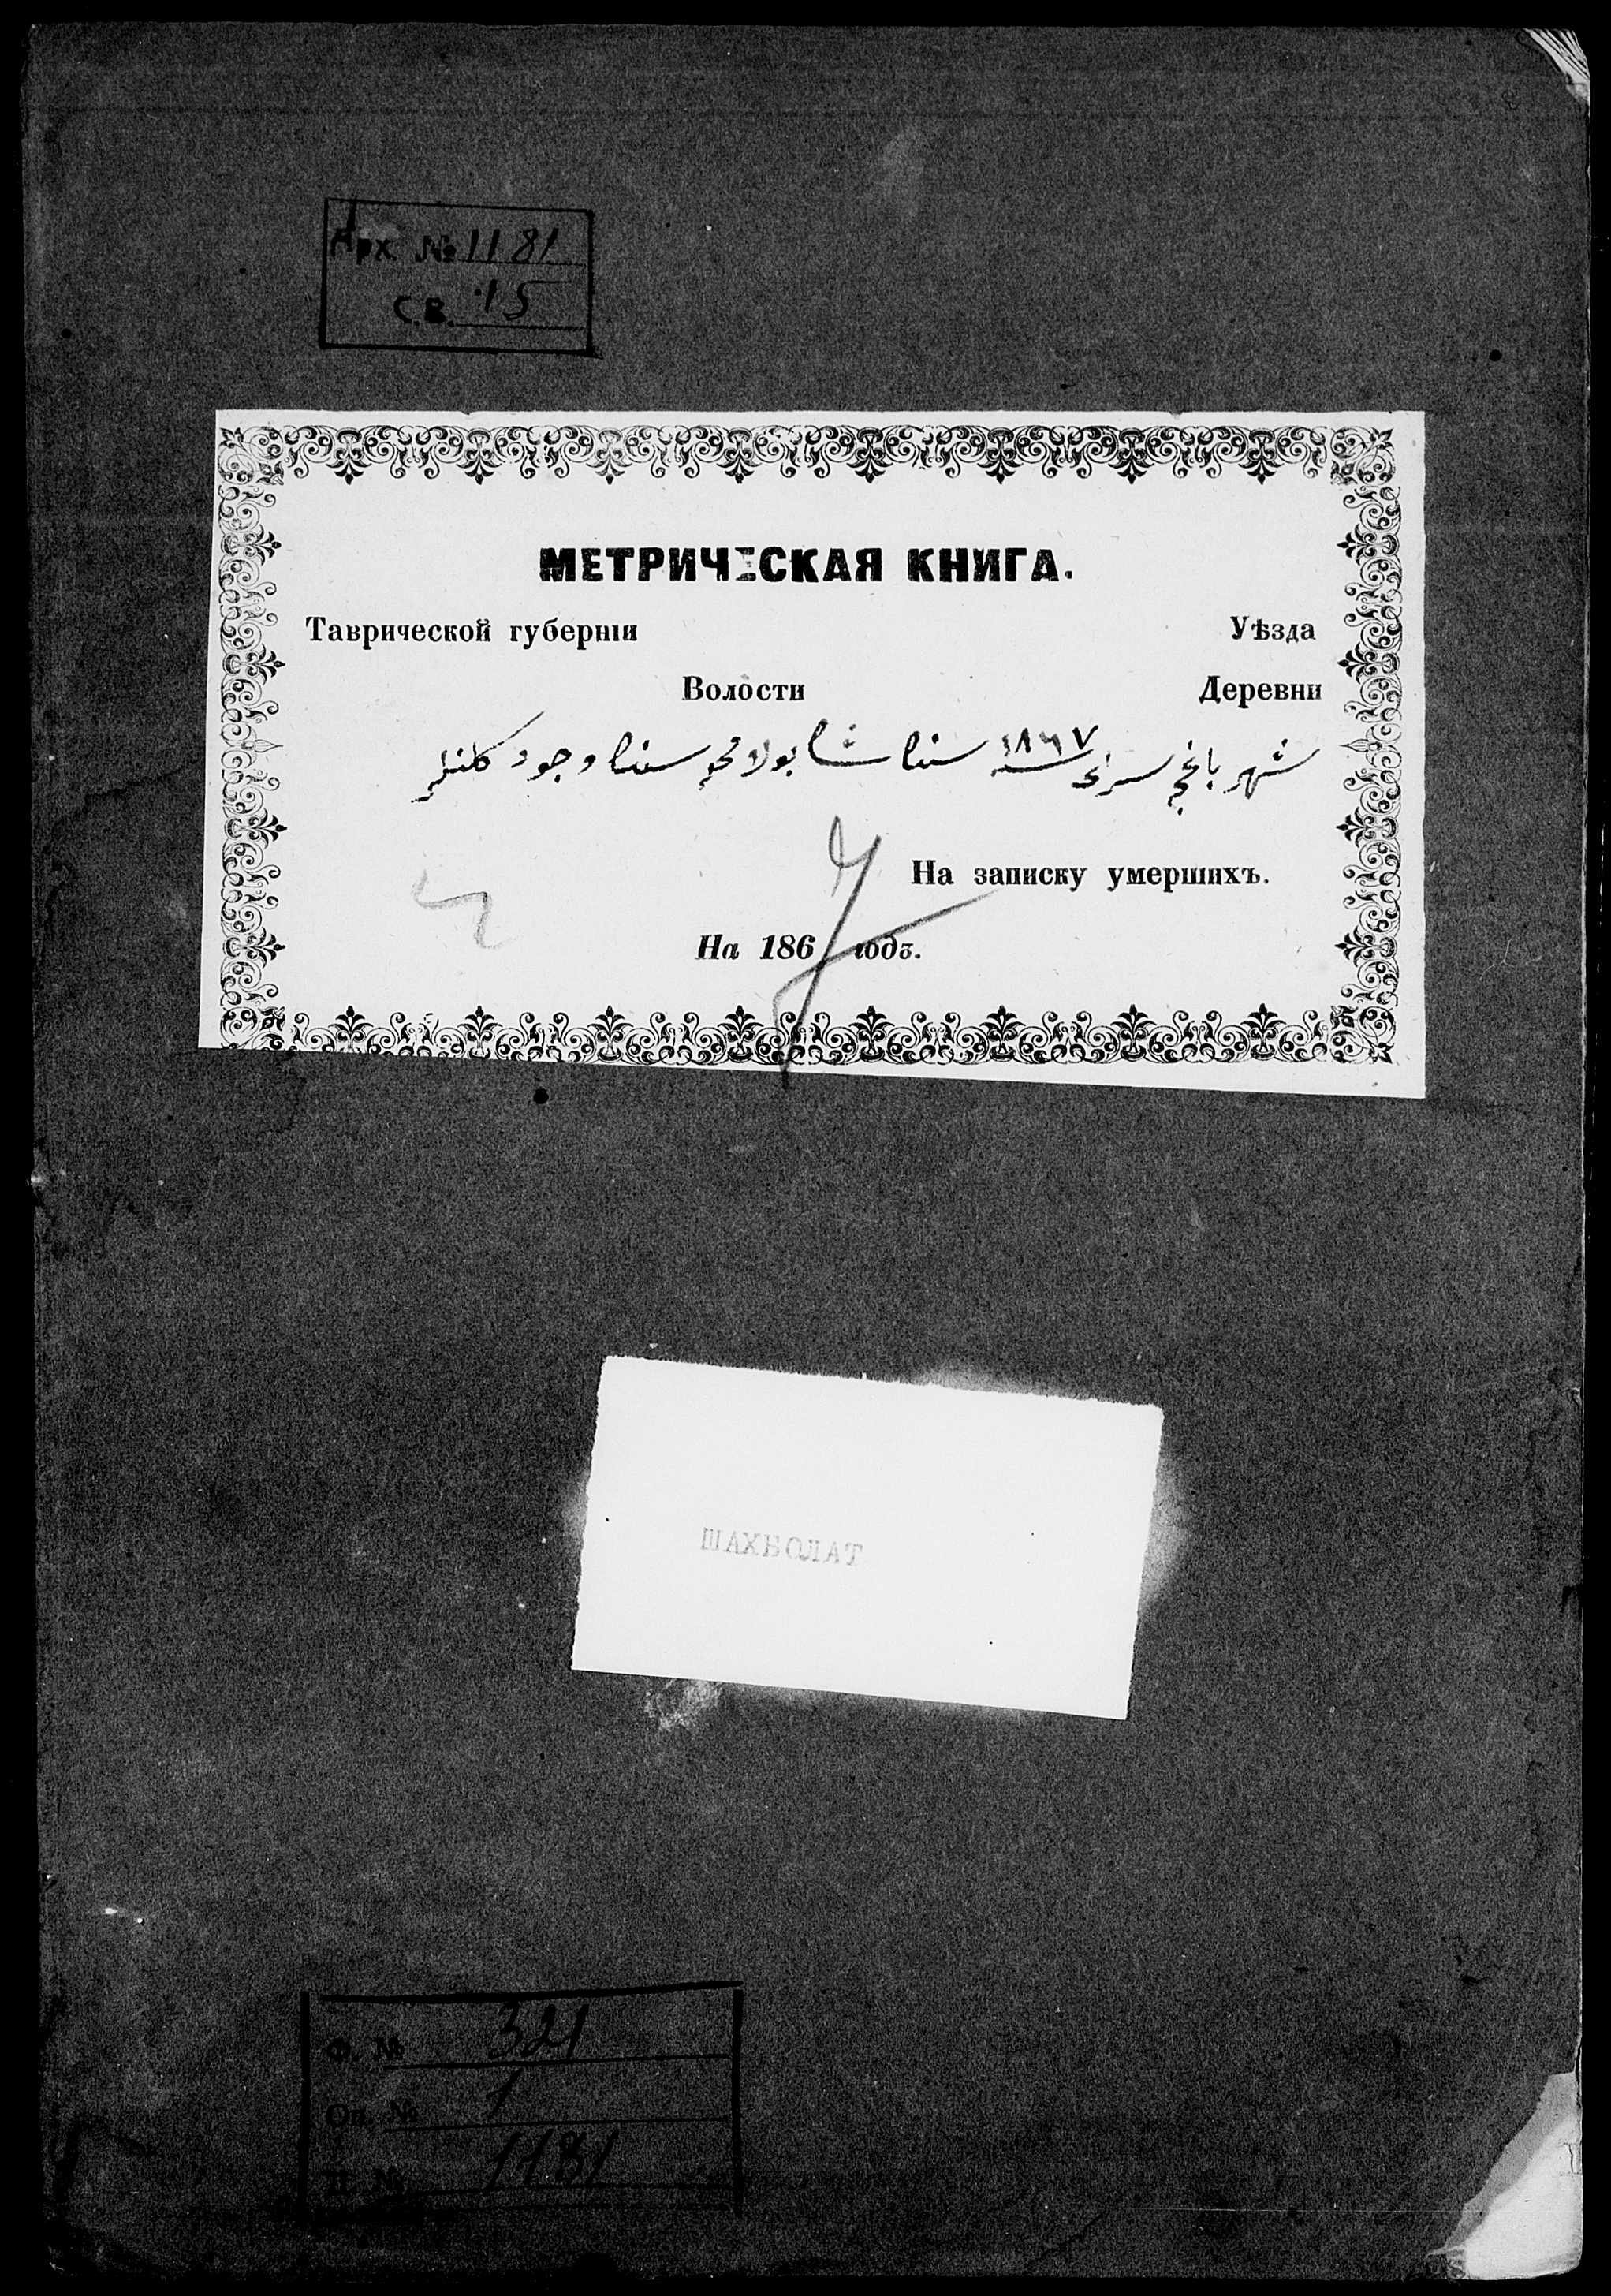 Арх № 1181
С.В. 15
МЕТРИЧЕСКАЯ КНИГА.
Таврической губерніи Уѣзда
Волости Деревни
شهر باغچه سراى ١٨٦٧ سنه
На записку умершихъ.
На 1867 годъ.
ШАХБОЛАТ
Ф. № 321
Оп. № 1
1181